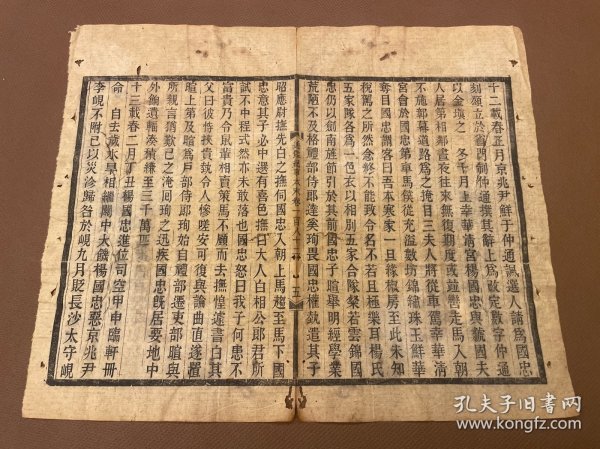 十二載春正月京兆尹鮮于仲通諷選人請爲國忠
刻頌立於省門制仲通撰其辭上爲改定數字仲通
以金填之 冬十月上幸華清宮楊國忠與虢國夫
人居第相鄰晝夜往來無復期度或竝轡走馬入朝
不施鄣幕道路爲之掩目三夫人將從車駕幸華清
宮會於國忠第車馬僕從充溢數坊錦繡珠玉鮮華
奪目國忠謂客曰吾本寒家一旦緣椒房至此未知
稅駕之所然念終不能致令名不若且極樂耳楊氏
五家隊各爲一色衣以相別五家合隊粲若雲錦國
忠仍以劍南旌節引於其前國忠子暄舉明經學業
荒陋不及格禮部侍郎達奚珣畏國忠權埶遣其子
昭應尉撫先白之撫伺國忠入朝上馬趨至馬下國
忠意其子必中選有喜色撫曰大人白相公郎君所
試不中程式然亦未敢落也國忠怒曰我子何患不
富貴乃令鼠輩相賣策馬不顧而去撫惶遽書白其
父曰彼恃挾貴埶令人慘嗟安可復與論曲直遂置
暄上第及暄爲戶部侍郎珣始自禮部遷吏部暄與
所親言猶歎己之淹回珣之迅疾國忠旣居要地中
外餉遺輻湊積縑至三千萬匹
十三載春二月丁丑楊國忠進位司空甲申臨軒冊
命 自去歲水旱相繼關中大饑楊國忠惡京兆尹
李峴不附已以災沴歸咎於峴九月貶長沙太守峴
孔夫子旧书网
www.kongfz.com